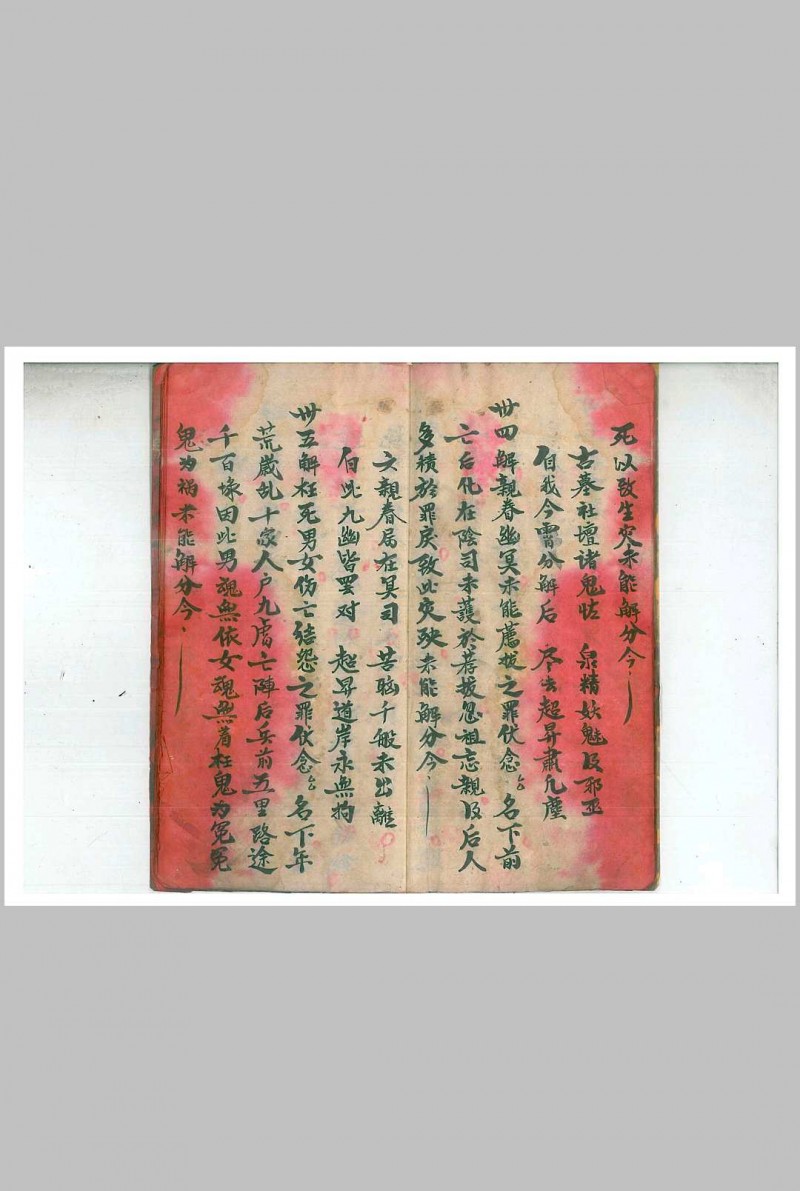 死以致生灾未能解分今、
古墓社壇诸鬼怪　泉精妖魅及邪巫
自我今宵分解后　尽去超昇肃凡塵
卅四解親眷幽冥未能薦拔之罪伏念厶名下前
亡后化在陰司未護於薦拔忽祖忘親及后人
多積於罪戾致此灾殃未能解分今、
六親眷属在冥司　苦惱千般未出離
自此九幽皆罢对　超昇道岸永無拘
卅五解枉死男女伤亡结怨之罪伏念厶名下年
荒歲乱十家人户九虐亡陣后兵前五里路途
千百塚因此男魂無依女魂無着枉鬼为冤冤
鬼为祸未能解分今、